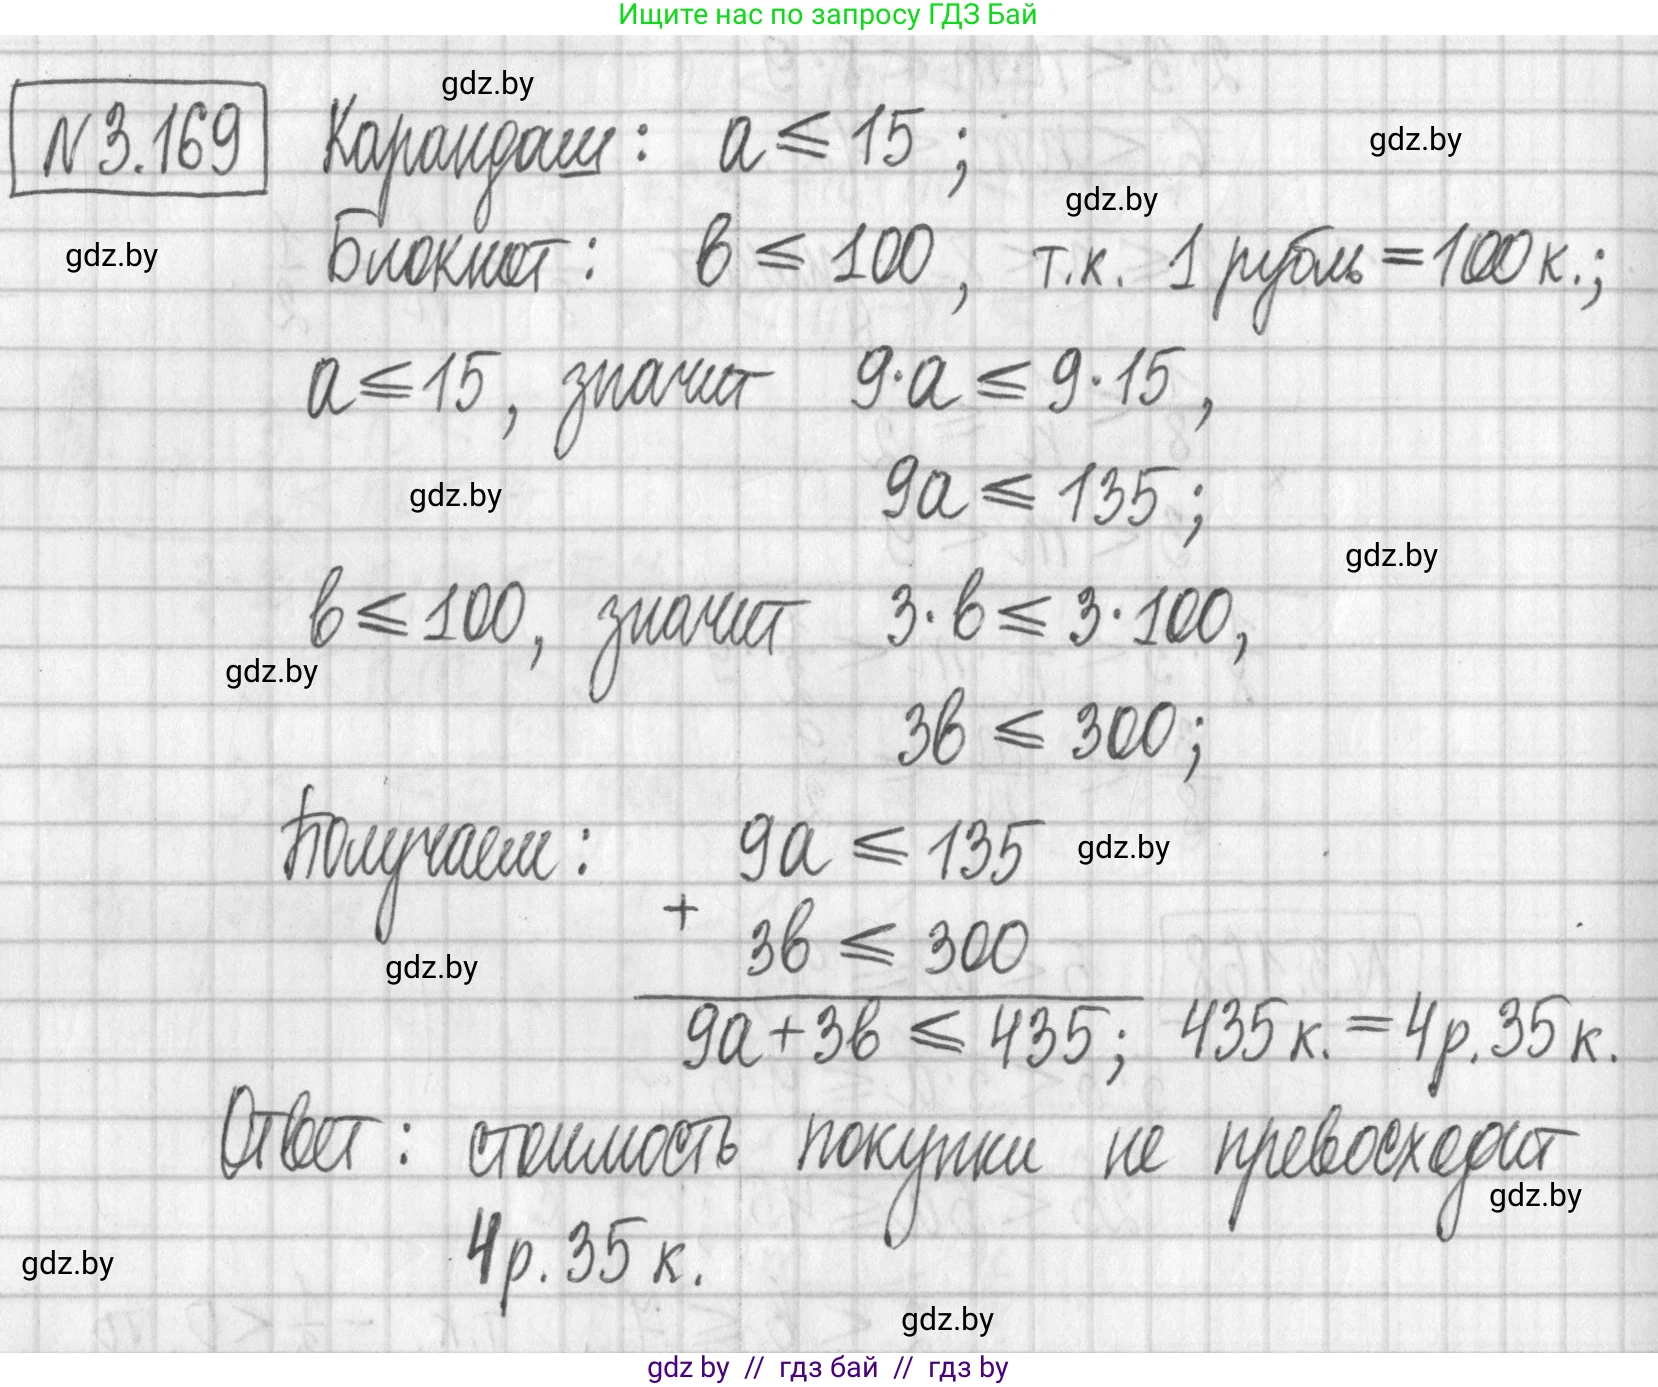 Ищите нас по запросу ГДЗ Бай
gdz.by
N 3.169 Карандаш: a ⩽ 15 ;
gdz.by
gdz.by
gdz.by
Блокнот: в ⩽ 100 , т.к. 1 рубль = 100 к.;
a ⩽ 15, значит 9·a ⩽ 9·15,
9a ⩽ 135;
gdz.by
gdz.by
в ⩽ 100, значит 3·в ⩽ 3·100,
gdz.by
3в ⩽ 300;
Получаем: 9a ⩽ 135
gdz.by
+ 3в ⩽ 300
gdz.by
9a + 3в ⩽ 435; 435 к. = 4 р. 35 к.
Ответ: стоимость покупки не превосходит
gdz.by
4 р. 35 к.
gdz.by
gdz.by
gdz by // гдз бай // гдз by